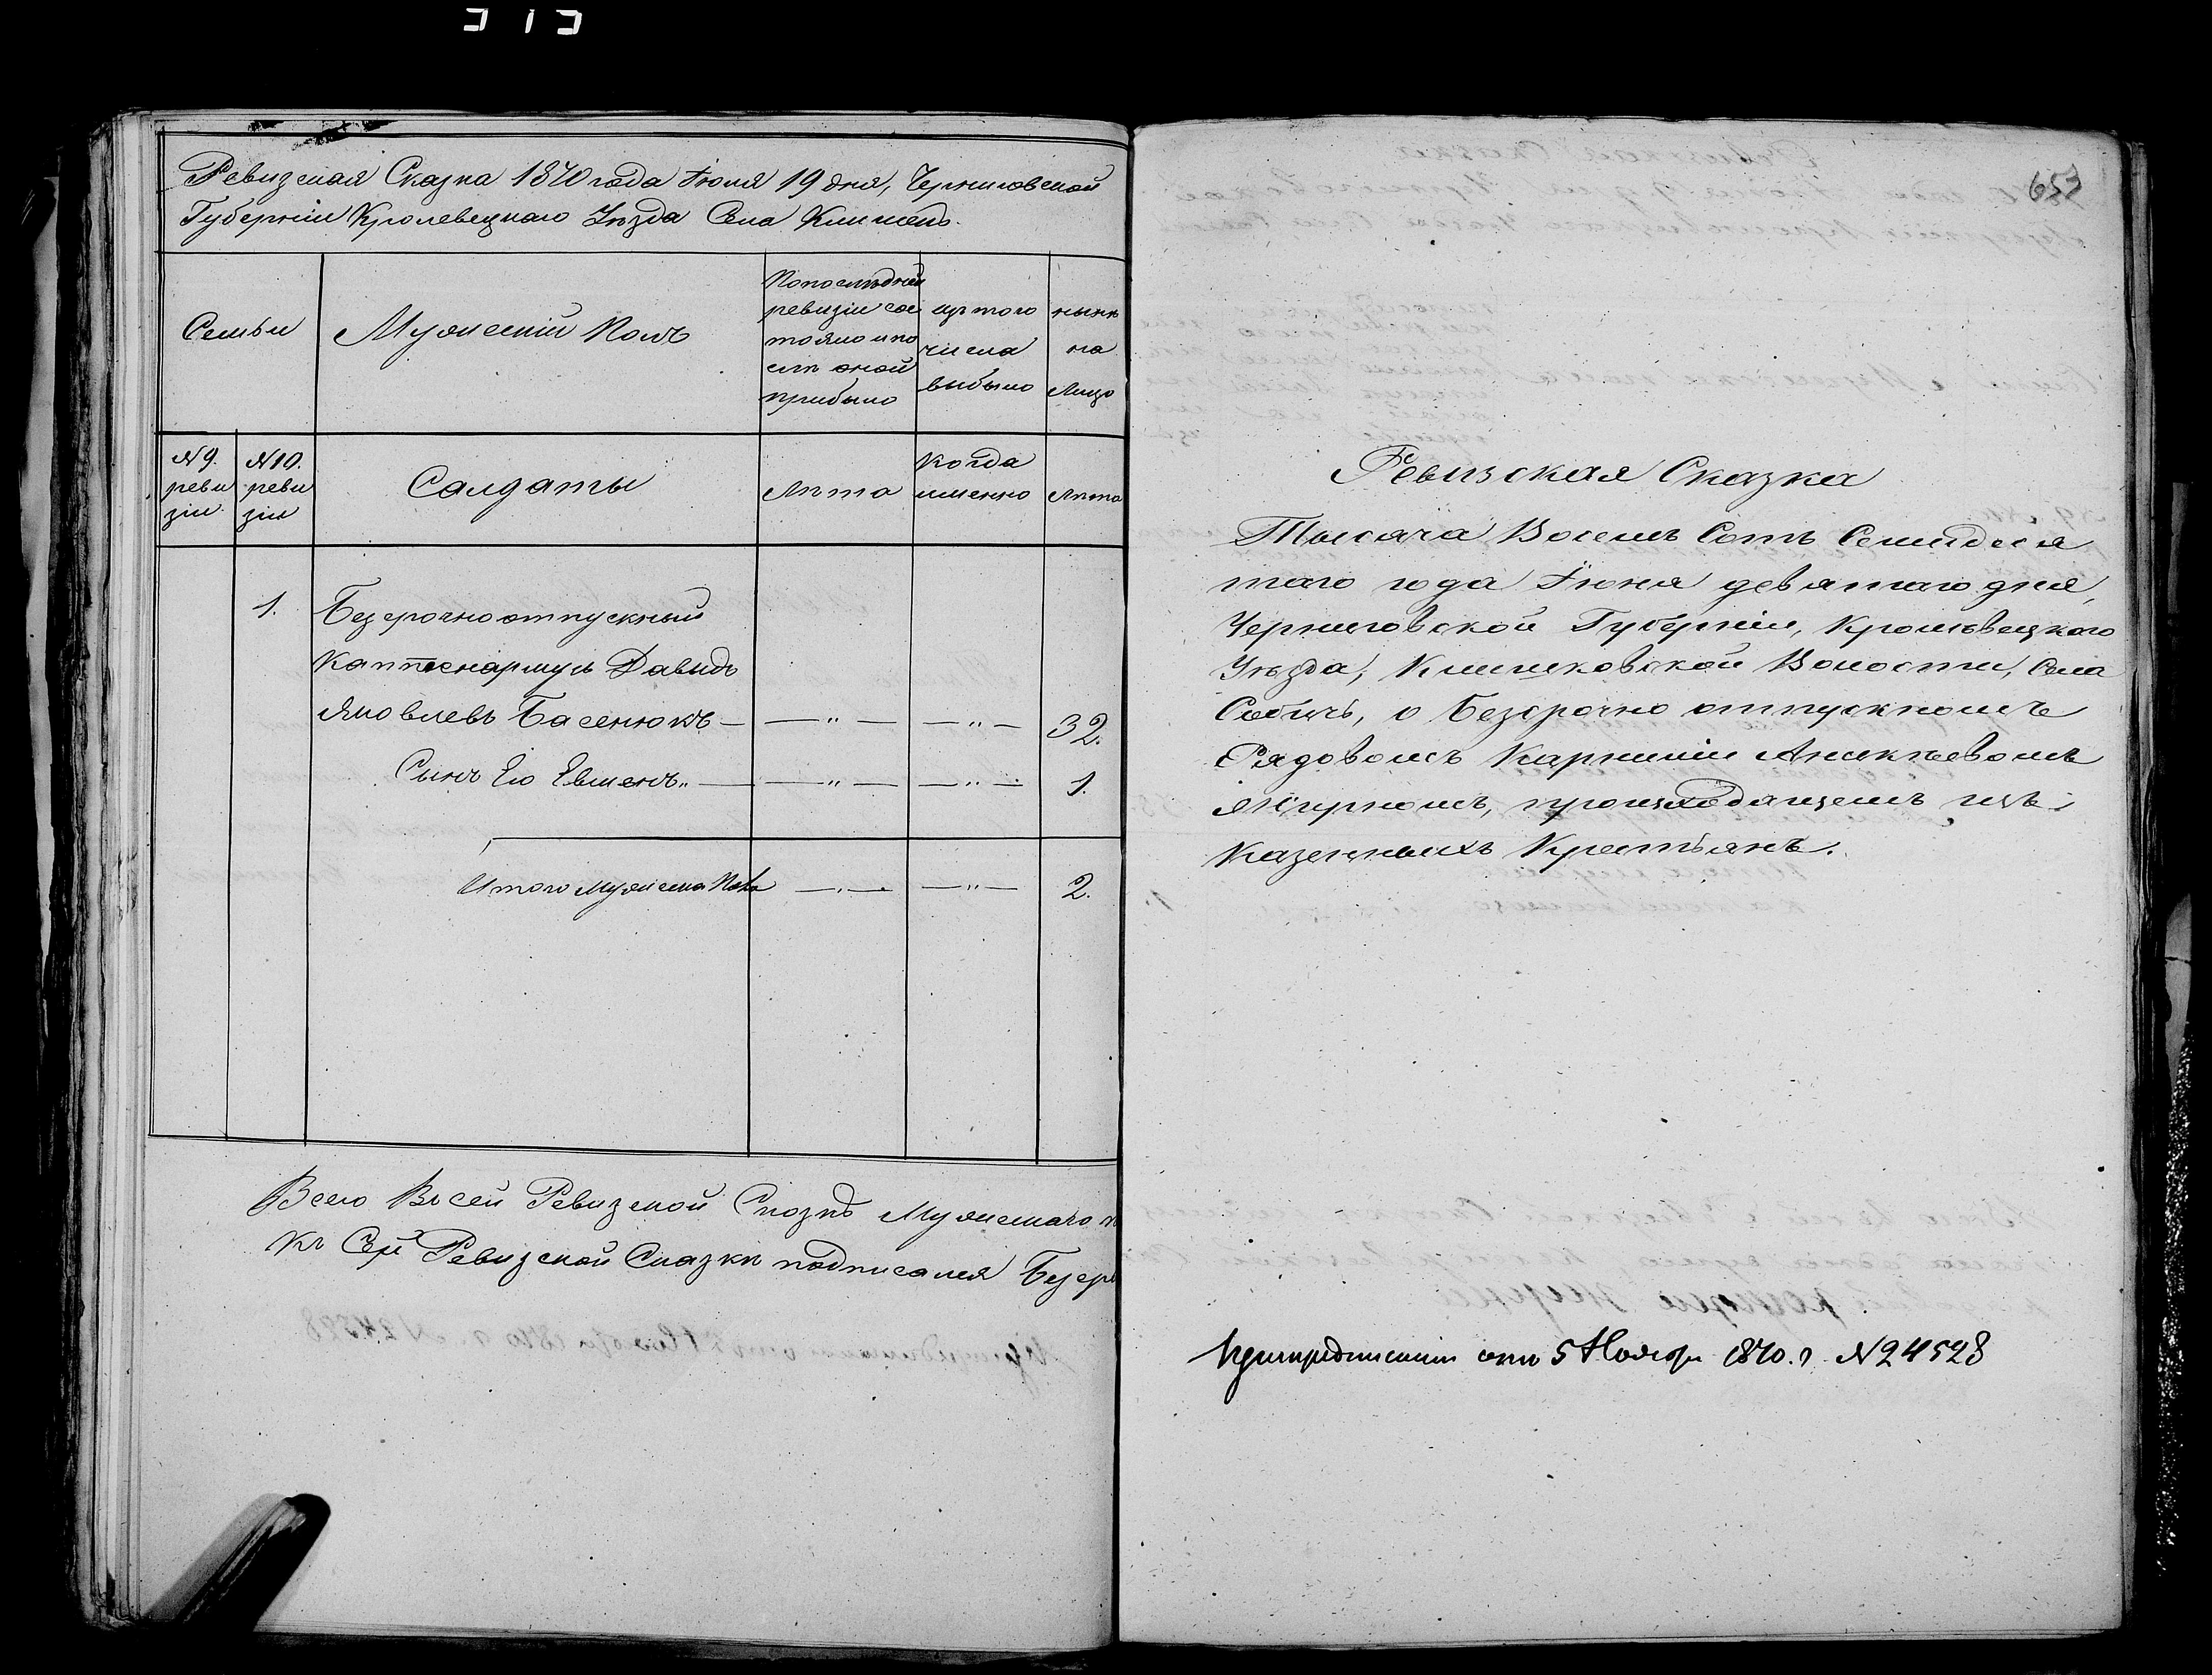 Ревизская Сказка 1870 года Іюля 19 дня, Черниговской
Губерніи Кролевецкаго Уѣзда Села Клишекъ.
Семьи
Мужескій Полъ
По последней
ревизіи сос
тояло и по
слѣ оной
прибыло
изъ того
числа
выбыло
нынѣ
на
Лицо
№ 9.
реви
зіи
№ 10.
реви
зіи
Салдаты
Лѣта
когда
именно
Лѣта
1.
Безсрочно отпускный
Каптенармусъ Давидъ
Яковлевъ Басенюкъ — — „ — — „ — 32.
Сынъ Его Евменъ „ — — „ — — „ — 1.
Итого мужеска Пола — „ — — „ — 2.
Всего Въ сей Ревизской Сказкѣ Мужескаго п
Къ Сей Ревизской Сказки подписался Безср
653
Ревизская Сказка
Тысяча Восемь Сотъ Семидеся
таго года Іюня девятаго дня,
Черниговской Губерніи, Кролѣвецкаго
Уѣзда, Клишковской Волости, Села
Собичь, о Безсрочно отпускномъ
Рядовомъ Карниліи Аникѣевомъ
Жирномъ, происходящемъ изъ
Казенныхъ Крестьянъ.
При предписаніи отъ 5 Ноября 1870. г. № 24528